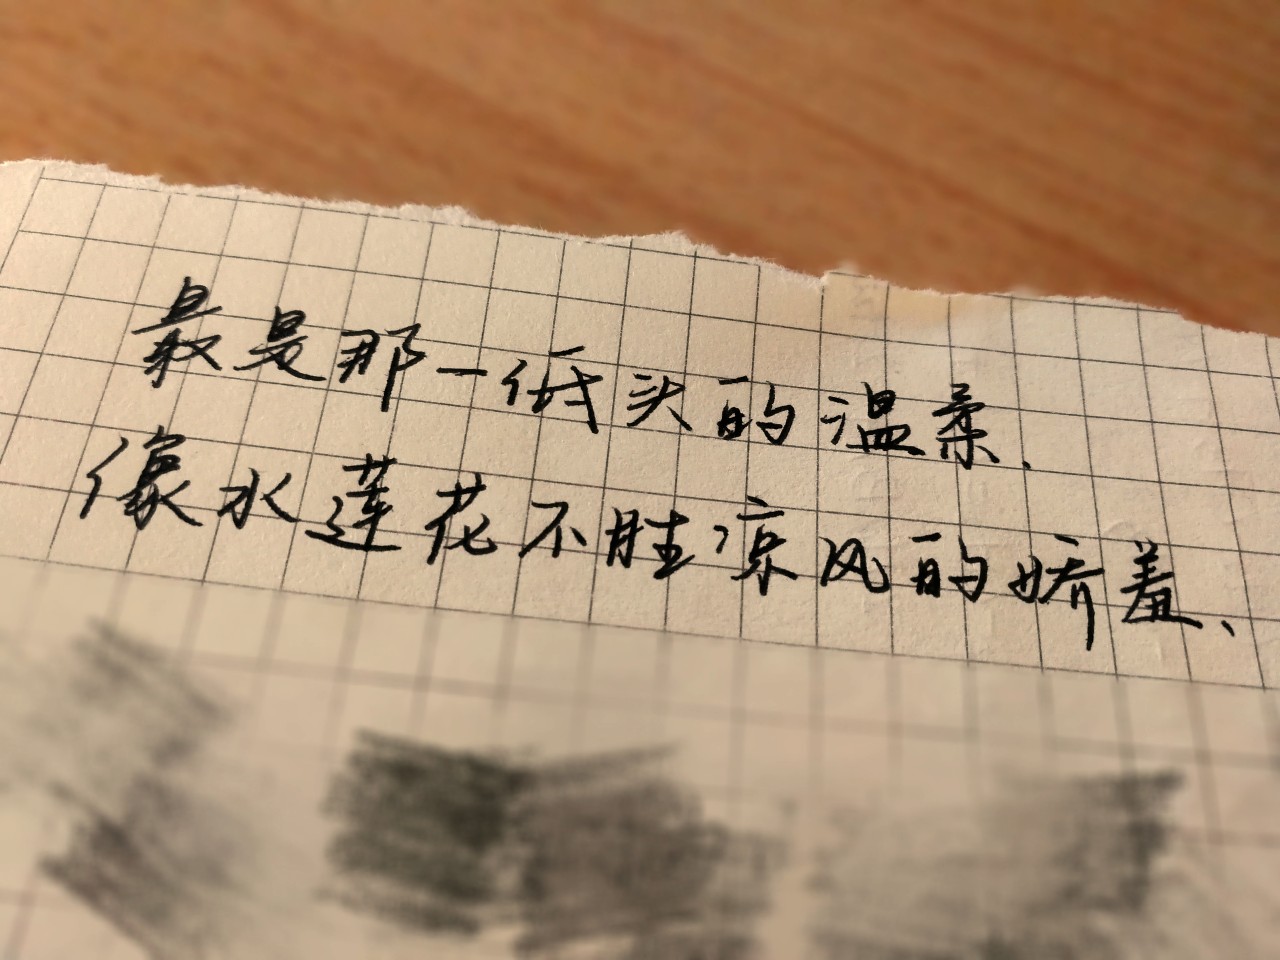 最是那一低头的温柔.
像水莲花不胜凉风的娇羞、